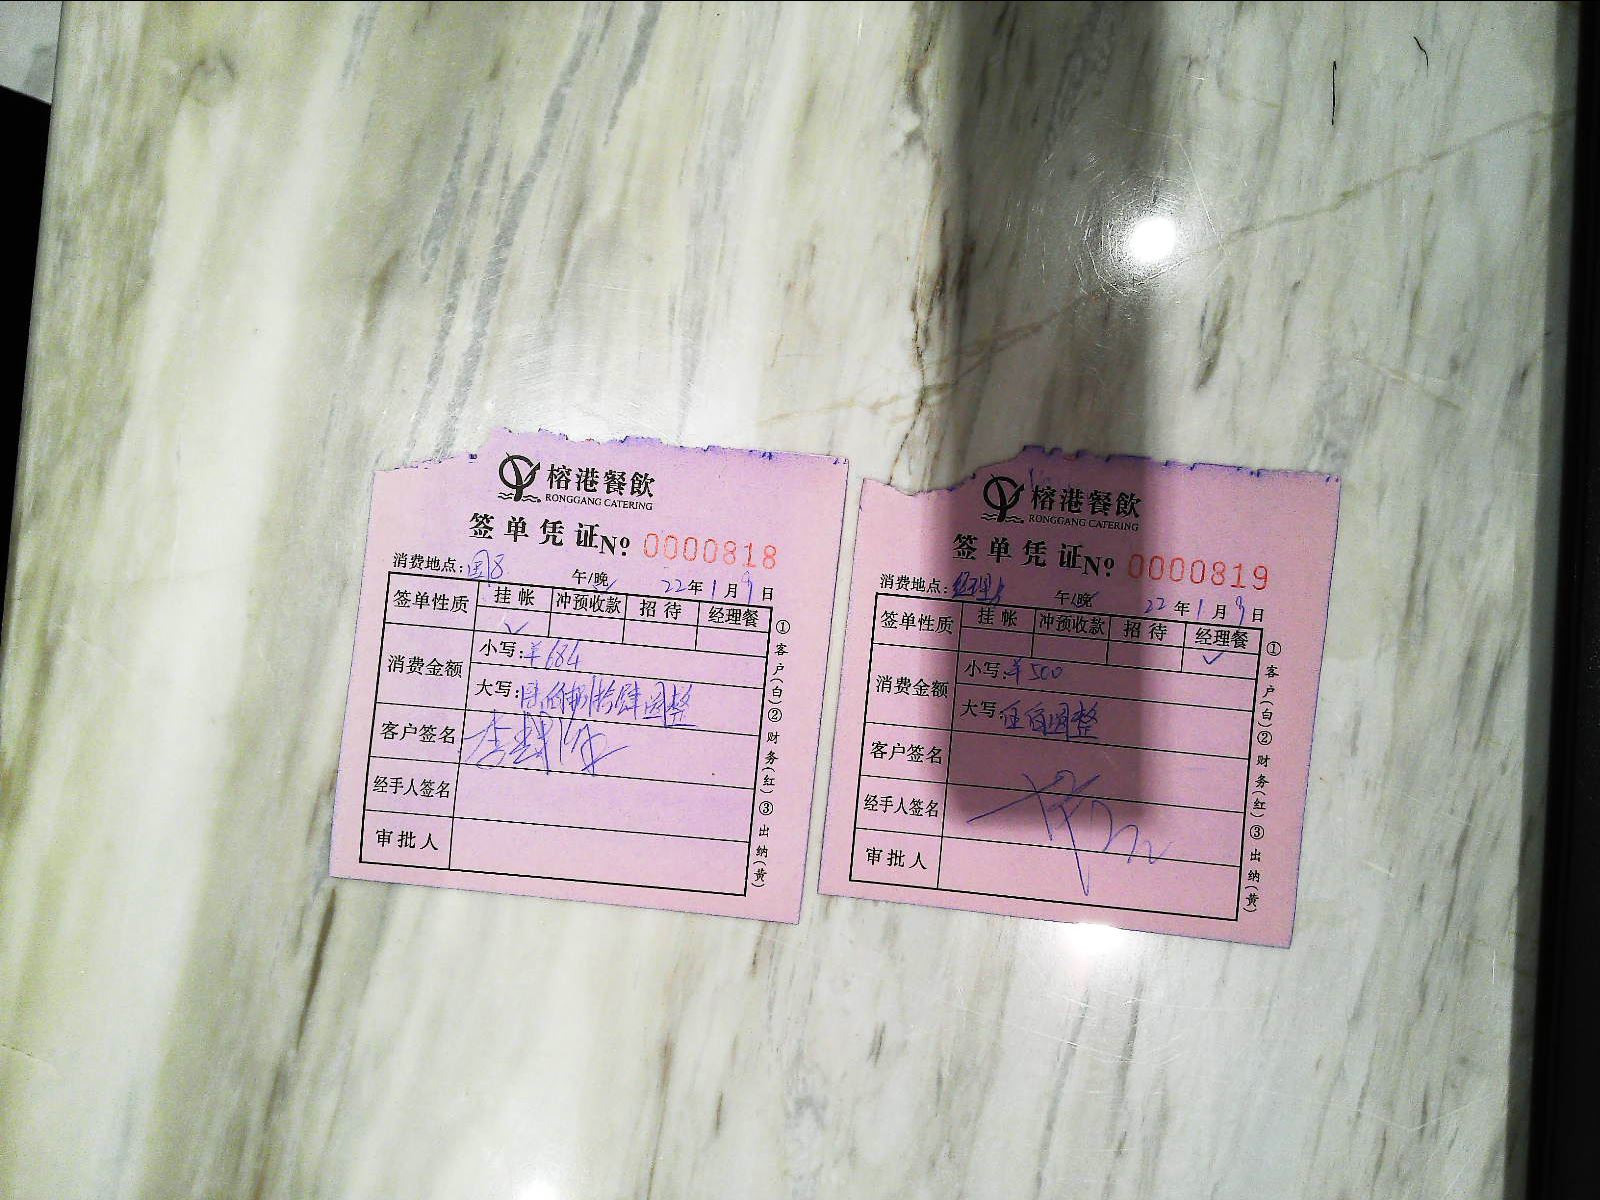 榕港餐飲
RONGGANG CATERING
签单凭证 Nº 0000818
消费地点:国8 午/晚 22年1月9日
签单性质 挂帐 冲预收款 招待 经理餐
✓
消费金额
小写:¥684
大写:陆佰捌拾肆圆整
客户签名
经手人签名
审批人
①客户(白)②财务(红)③出纳(黄)
榕港餐飲
RONGGANG CATERING
签单凭证 Nº 0000819
消费地点:经理 午/晚 22年1月9日
签单性质 挂帐 冲预收款 招待 经理餐
✓
消费金额
小写:¥500
大写:伍佰圆整
客户签名
经手人签名
审批人
①客户(白)②财务(红)③出纳(黄)